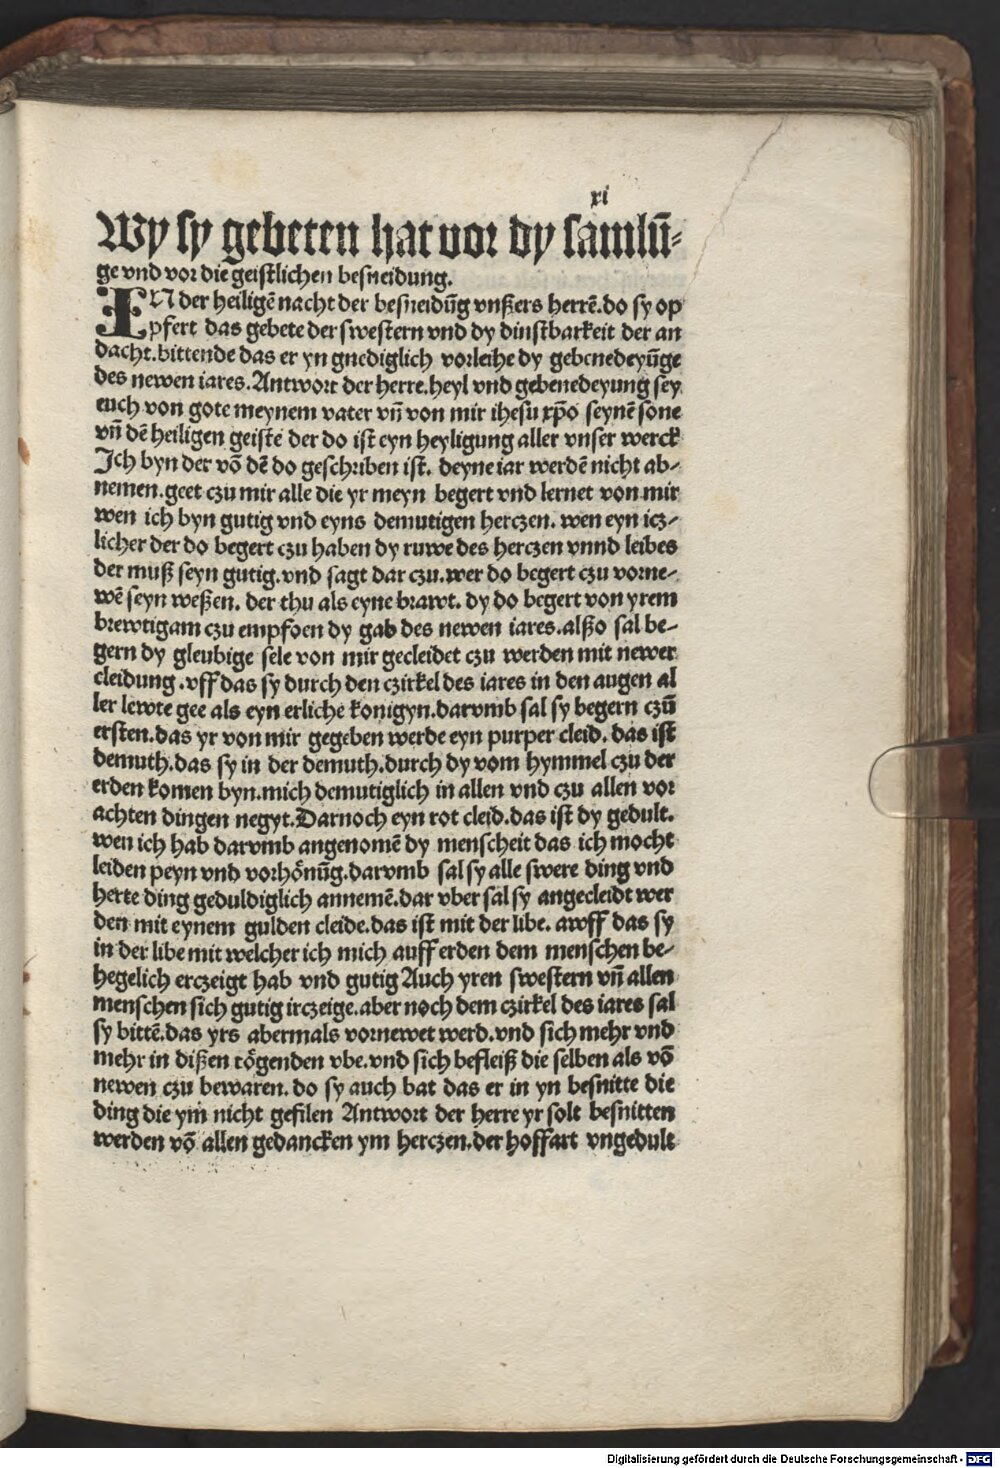 xi
Wy sy gebeten hat vor dy samlū⸗
ge vnd vor die geistlichen besneidung.
IN der heiligē nacht der besneidūg vnßers herrē.do sy op
pfert das gebete der swestern vnd dy dinstbarkeit der an
dacht.bittende das er yn gnediglich vorleihe dy gebenedeyūge
des newen iares.Antwort der herre.heyl vnd gebenedeyung sey
euch von gote meynem vater vñ von mir ihesu xp̄o seynē sone
vñ dē heiligen geiste der do ist eyn heyligung aller vnser werck
Ich byn der vō dē do geschriben ist. deyne iar werdē nicht ab⸗
nemen.geet czu mir alle die yr meyn begert vnd lernet von mir
wen ich byn gutig vnd eyns demutigen herczen. wen eyn icz⸗
licher der do begert czu haben dy ruwe des herczen vnnd leibes
der muß seyn gutig.vnd sagt dar czu.wer do begert czu vorne⸗
wē seyn weßen. der thu als eyne brawt. dy do begert von yrem
brewtigam czu empfoen dy gab des newen iares.alßo sal be⸗
gern dy gleubige sele von mir gecleidet czu werden mit newer
cleidung.vff das sy durch den czirkel des iares in den augen al
ler lewte gee als eyn erliche konigyn.darvmb sal sy begern czū
ersten.das yr von mir gegeben werde eyn purper cleid. das ist
demuth.das sy in der demuth.durch dy vom hymmel czu der
erden komen byn.mich demutiglich in allen vnd czu allen vor
achten dingen negyt.Darnoch eyn rot cleid.das ist dy gedult.
wen ich hab darvmb angenomē dy menscheit das ich mocht
leiden peyn vnd vorhönūg.darvmb sal sy alle swere ding vnd
herte ding geduldiglich annemē.dar vber sal sy angecleidt wer
den mit eynem gulden cleide.das ist mit der libe. awff das sy
in der libe mit welcher ich mich auff erden dem menschen be⸗
hegelich erczeigt hab vnd gutig Auch yren swestern vñ allen
menschen sich gutig irczeige.aber noch dem czirkel des iares sal
sy bittē.das yrs abermals vornewet werd.vnd sich mehr vnd
mehr in dißen tögenden vbe.vnd sich befleiß die selben als vō
newen czu bewaren. do sy auch bat das er in yn besnitte die
ding die ym̄ nicht gefilen Antwort der herre yr solt besnitten
werden vō allen gedancken ym herczen.der hoffart vngedult
Digitalisierung gefördert durch die Deutsche Forschungsgemeinschaft - DFG